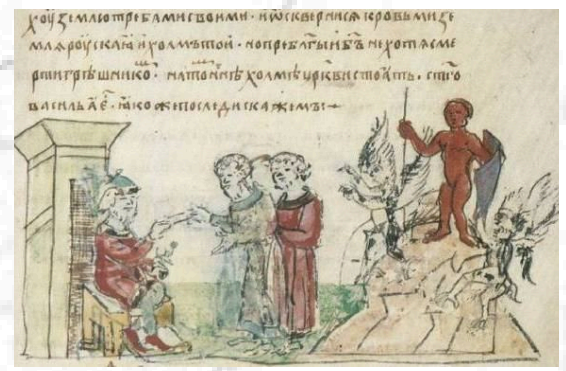 хоу землю требами своими · и ѡсквернися кровьми зе
мля роускаꙗ и холмъ той · но преблгыи бъ не хотя сме
рти грѣшникоⷨ · на тоⷨ нн҃ѣ холмѣ црквь стоить · стго
василья е҃ · ꙗкоже последи скажемъ